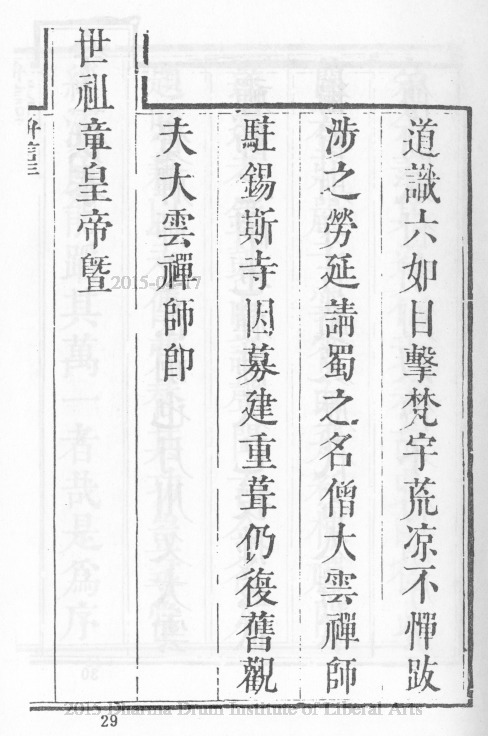 道識六如目擊梵宇荒凉不憚跋
涉之勞延請蜀之名僧大雲禪師
駐錫斯寺因募建重葺仍復舊觀
夫大雲禪師卽
世祖章皇帝曁
2015-04-17
2015 Dharma Drum Institute of Liberal Arts
29